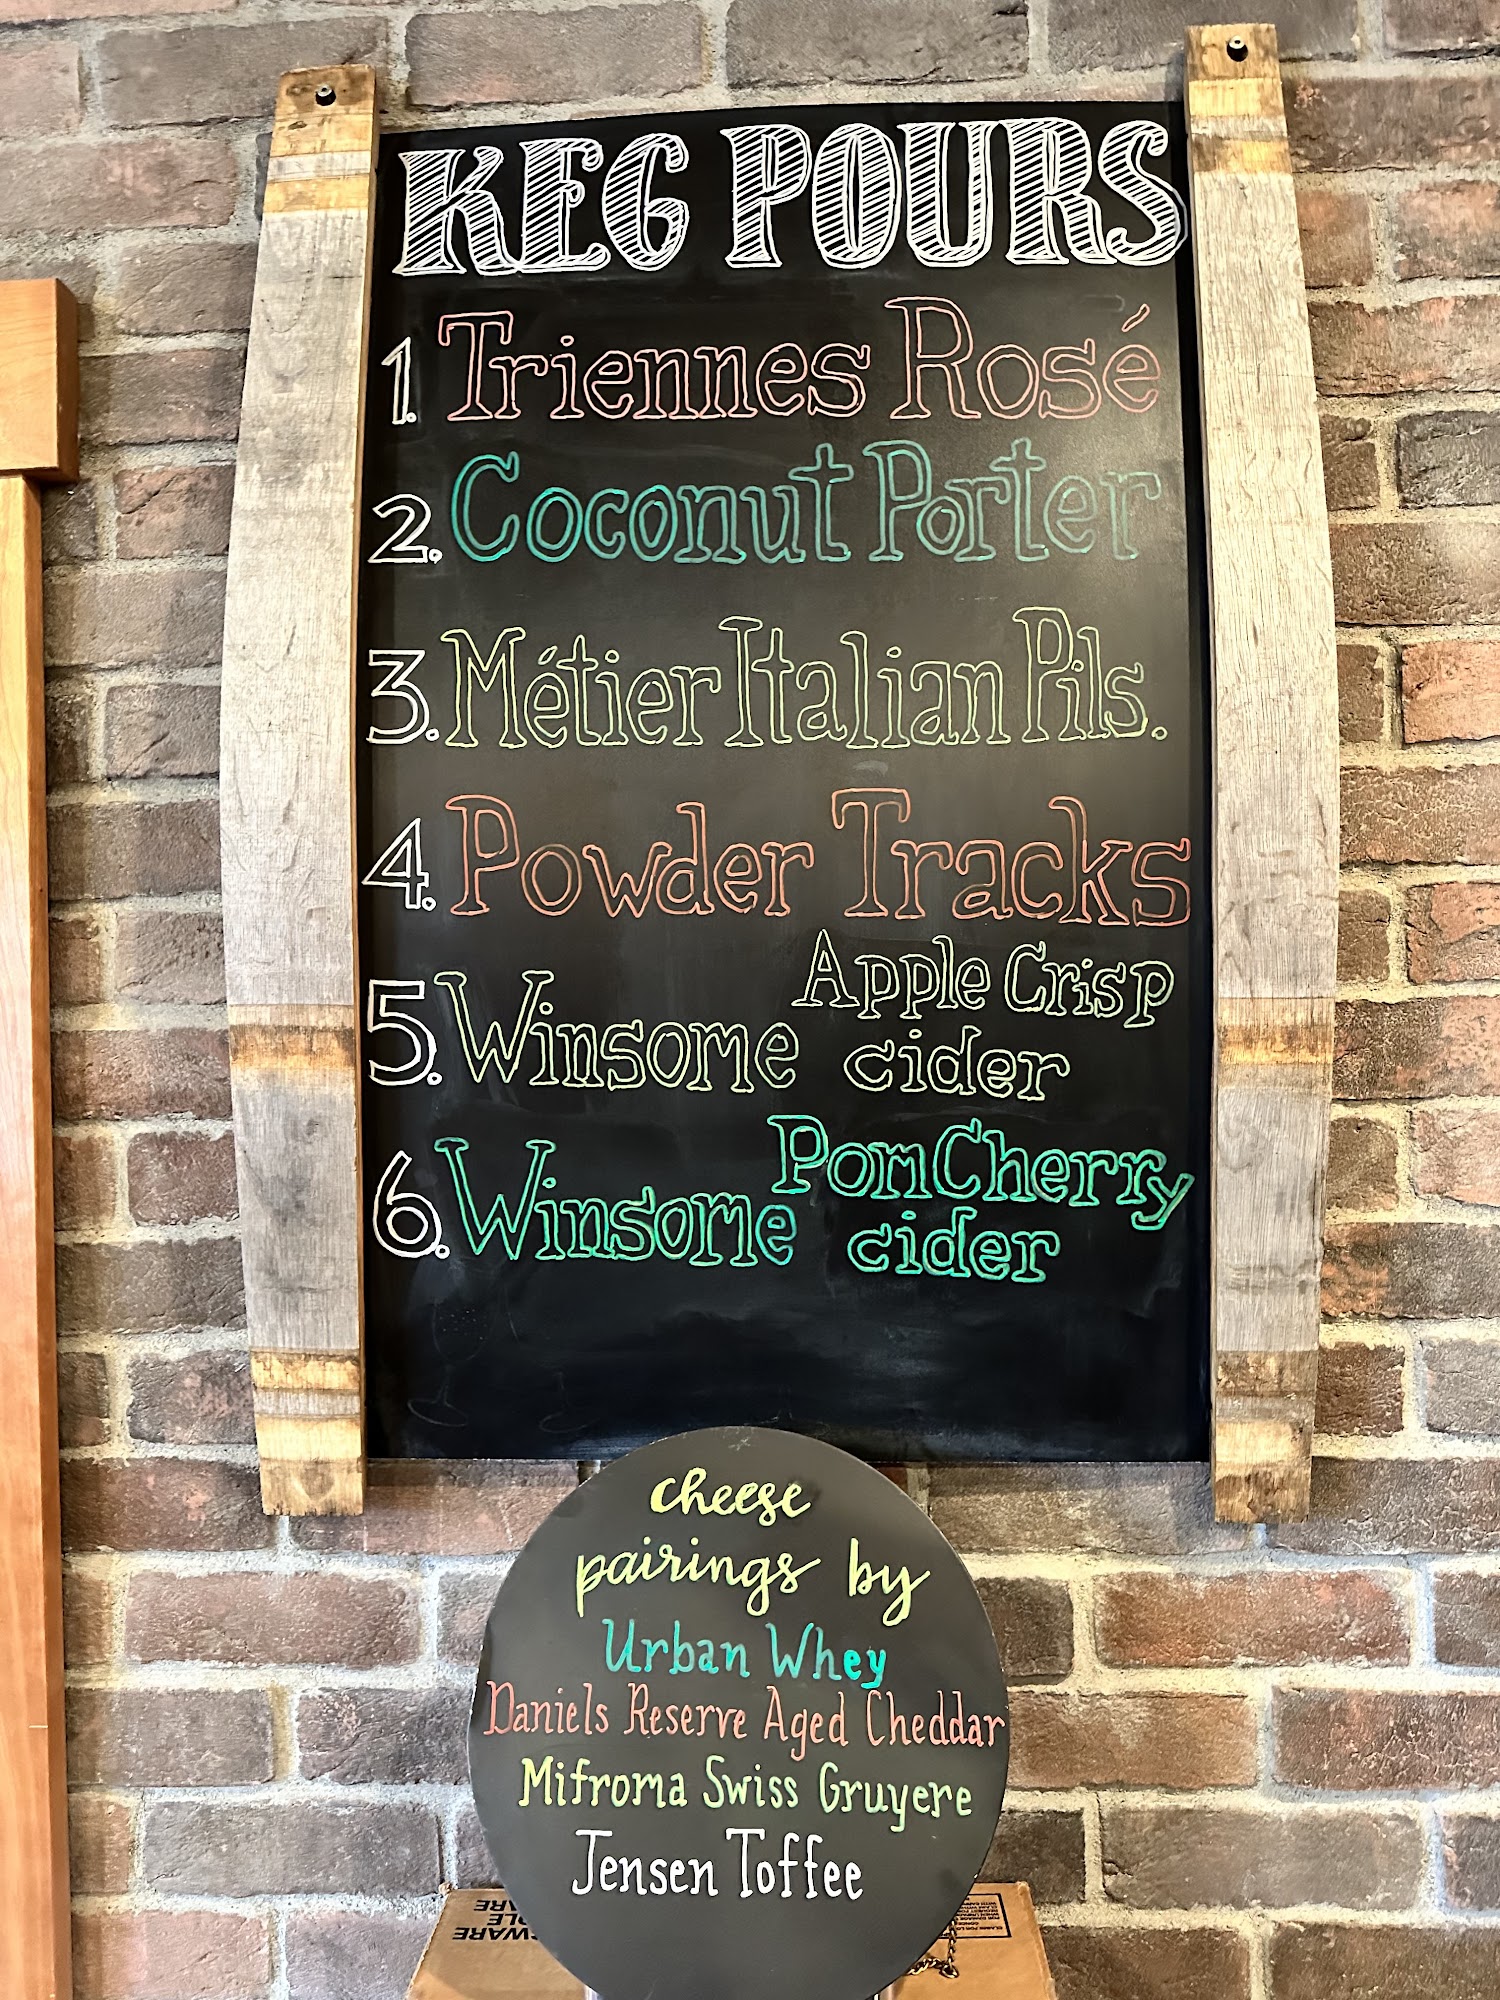 KEG POURS
1. Triennes Rosé
2. Coconut Porter
3. Métier Italian Pils.
4. Powder Tracks
5. Winsome Apple Crisp
cider
6. Winsome PomCherry
cider
cheese
pairings by
Urban Whey
Daniels Reserve Aged Cheddar
Mifroma Swiss Gruyere
Jensen Toffee